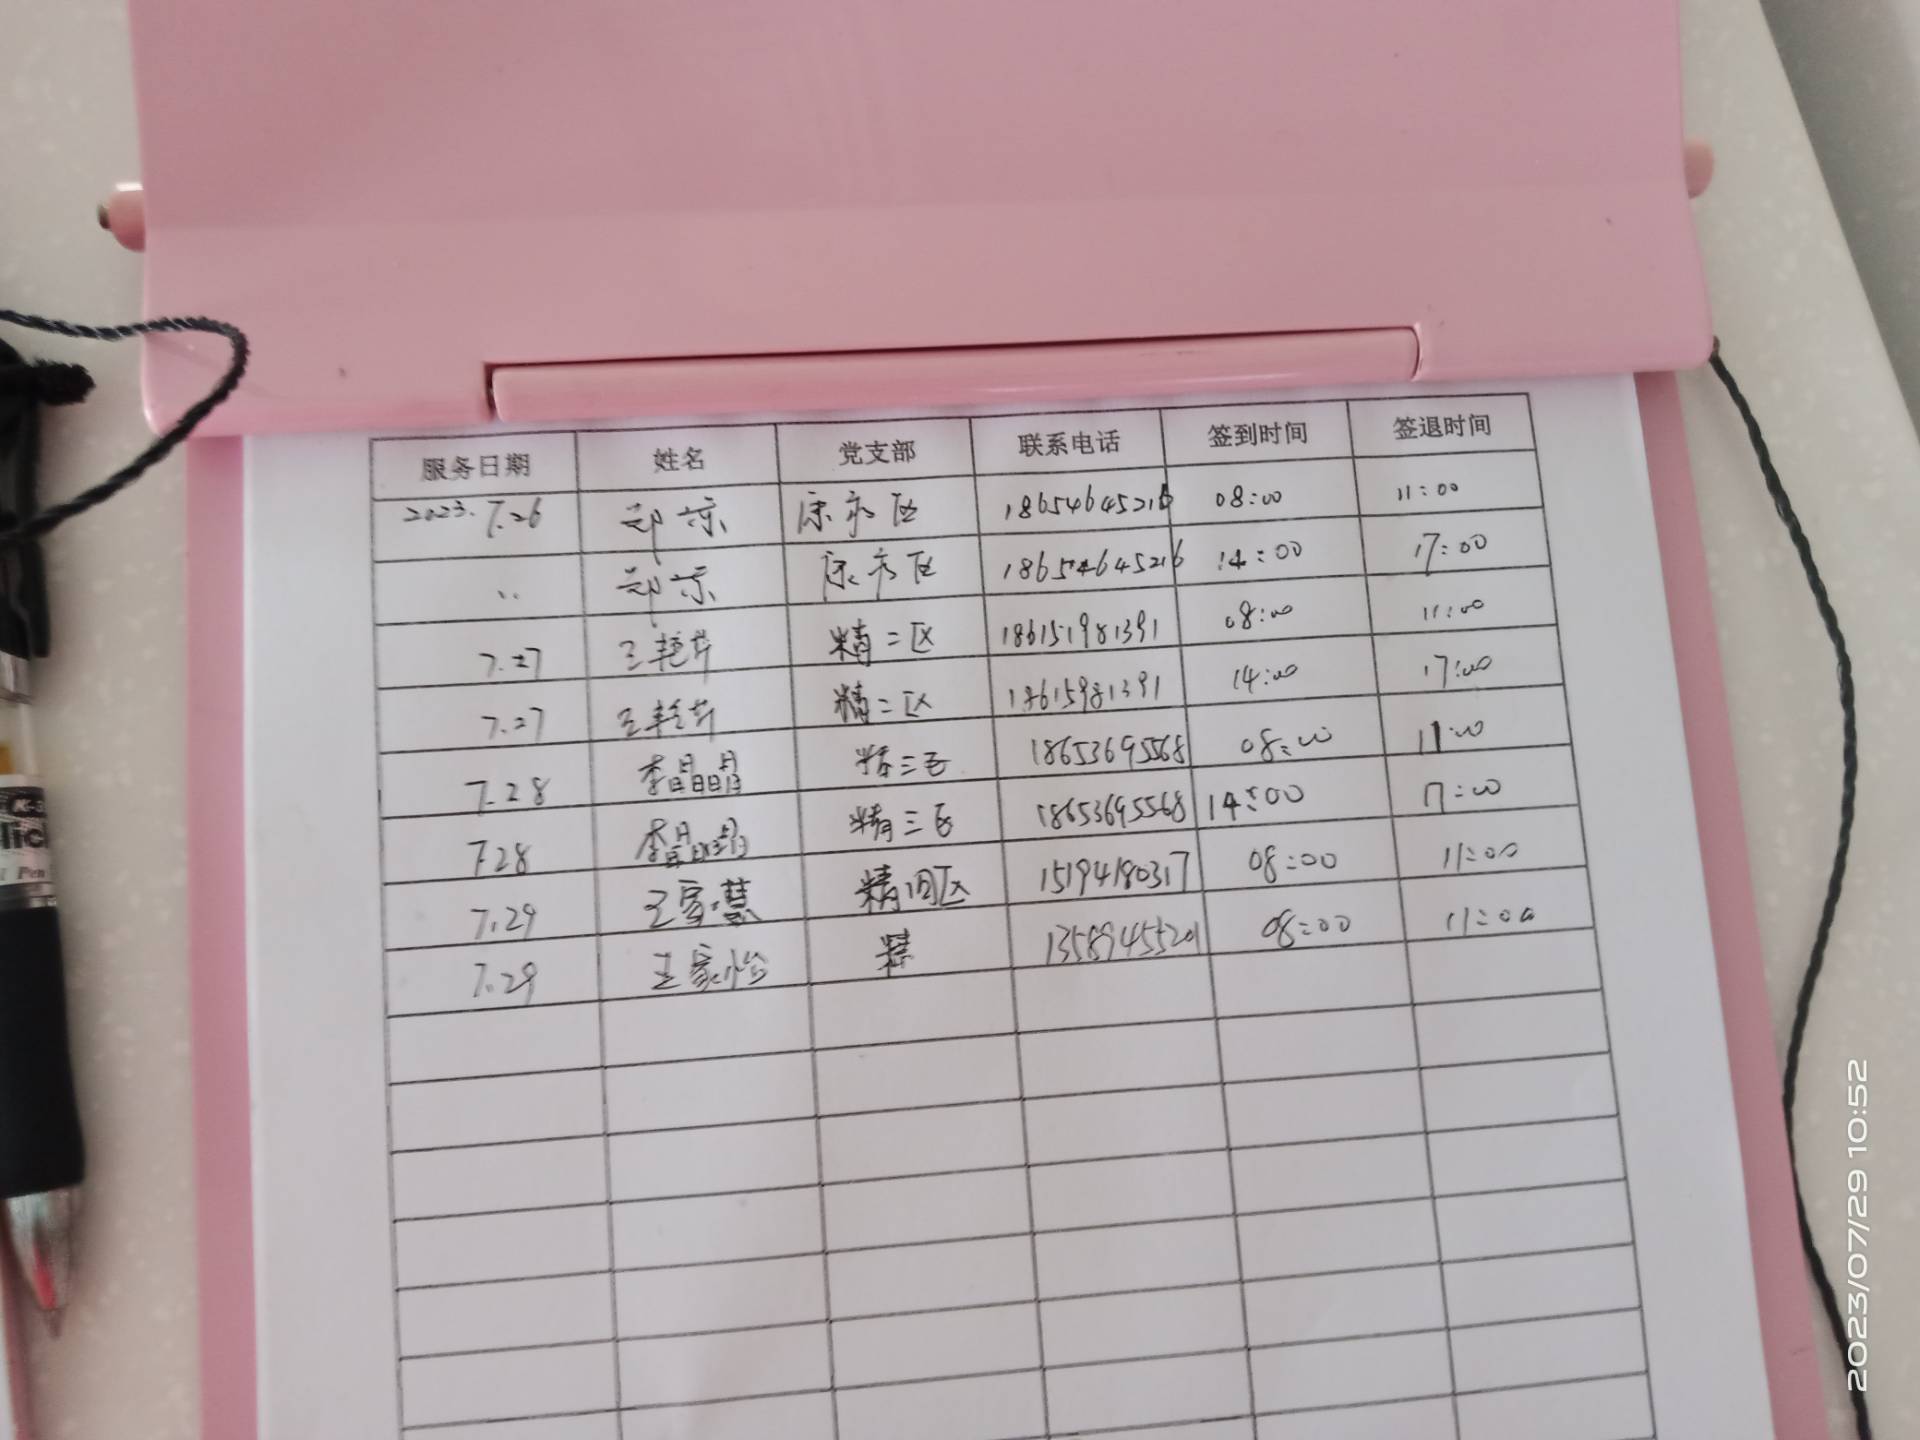 服务日期 姓名 党支部 联系电话 签到时间 签退时间
2023.7.26 郑京 康方区 18654645216 08:00 11:00
.. 郑京 康方区 18654645216 14:00 17:00
7.27 王艳芹 精二区 186151981391 08:00 11:00
7.27 王艳芹 精二区 18615981391 14:00 17:00
7.28 李晶晶 精三区 18653695568 08:00 11:00
7.28 李晶晶 精三区 18653695568 14:00 17:00
7.29 王家慧 精四区 15194180317 08:00 11:00
7.29 王家怡 精 13589455201 08:00 11:00
2023/07/29 10:52
Pen